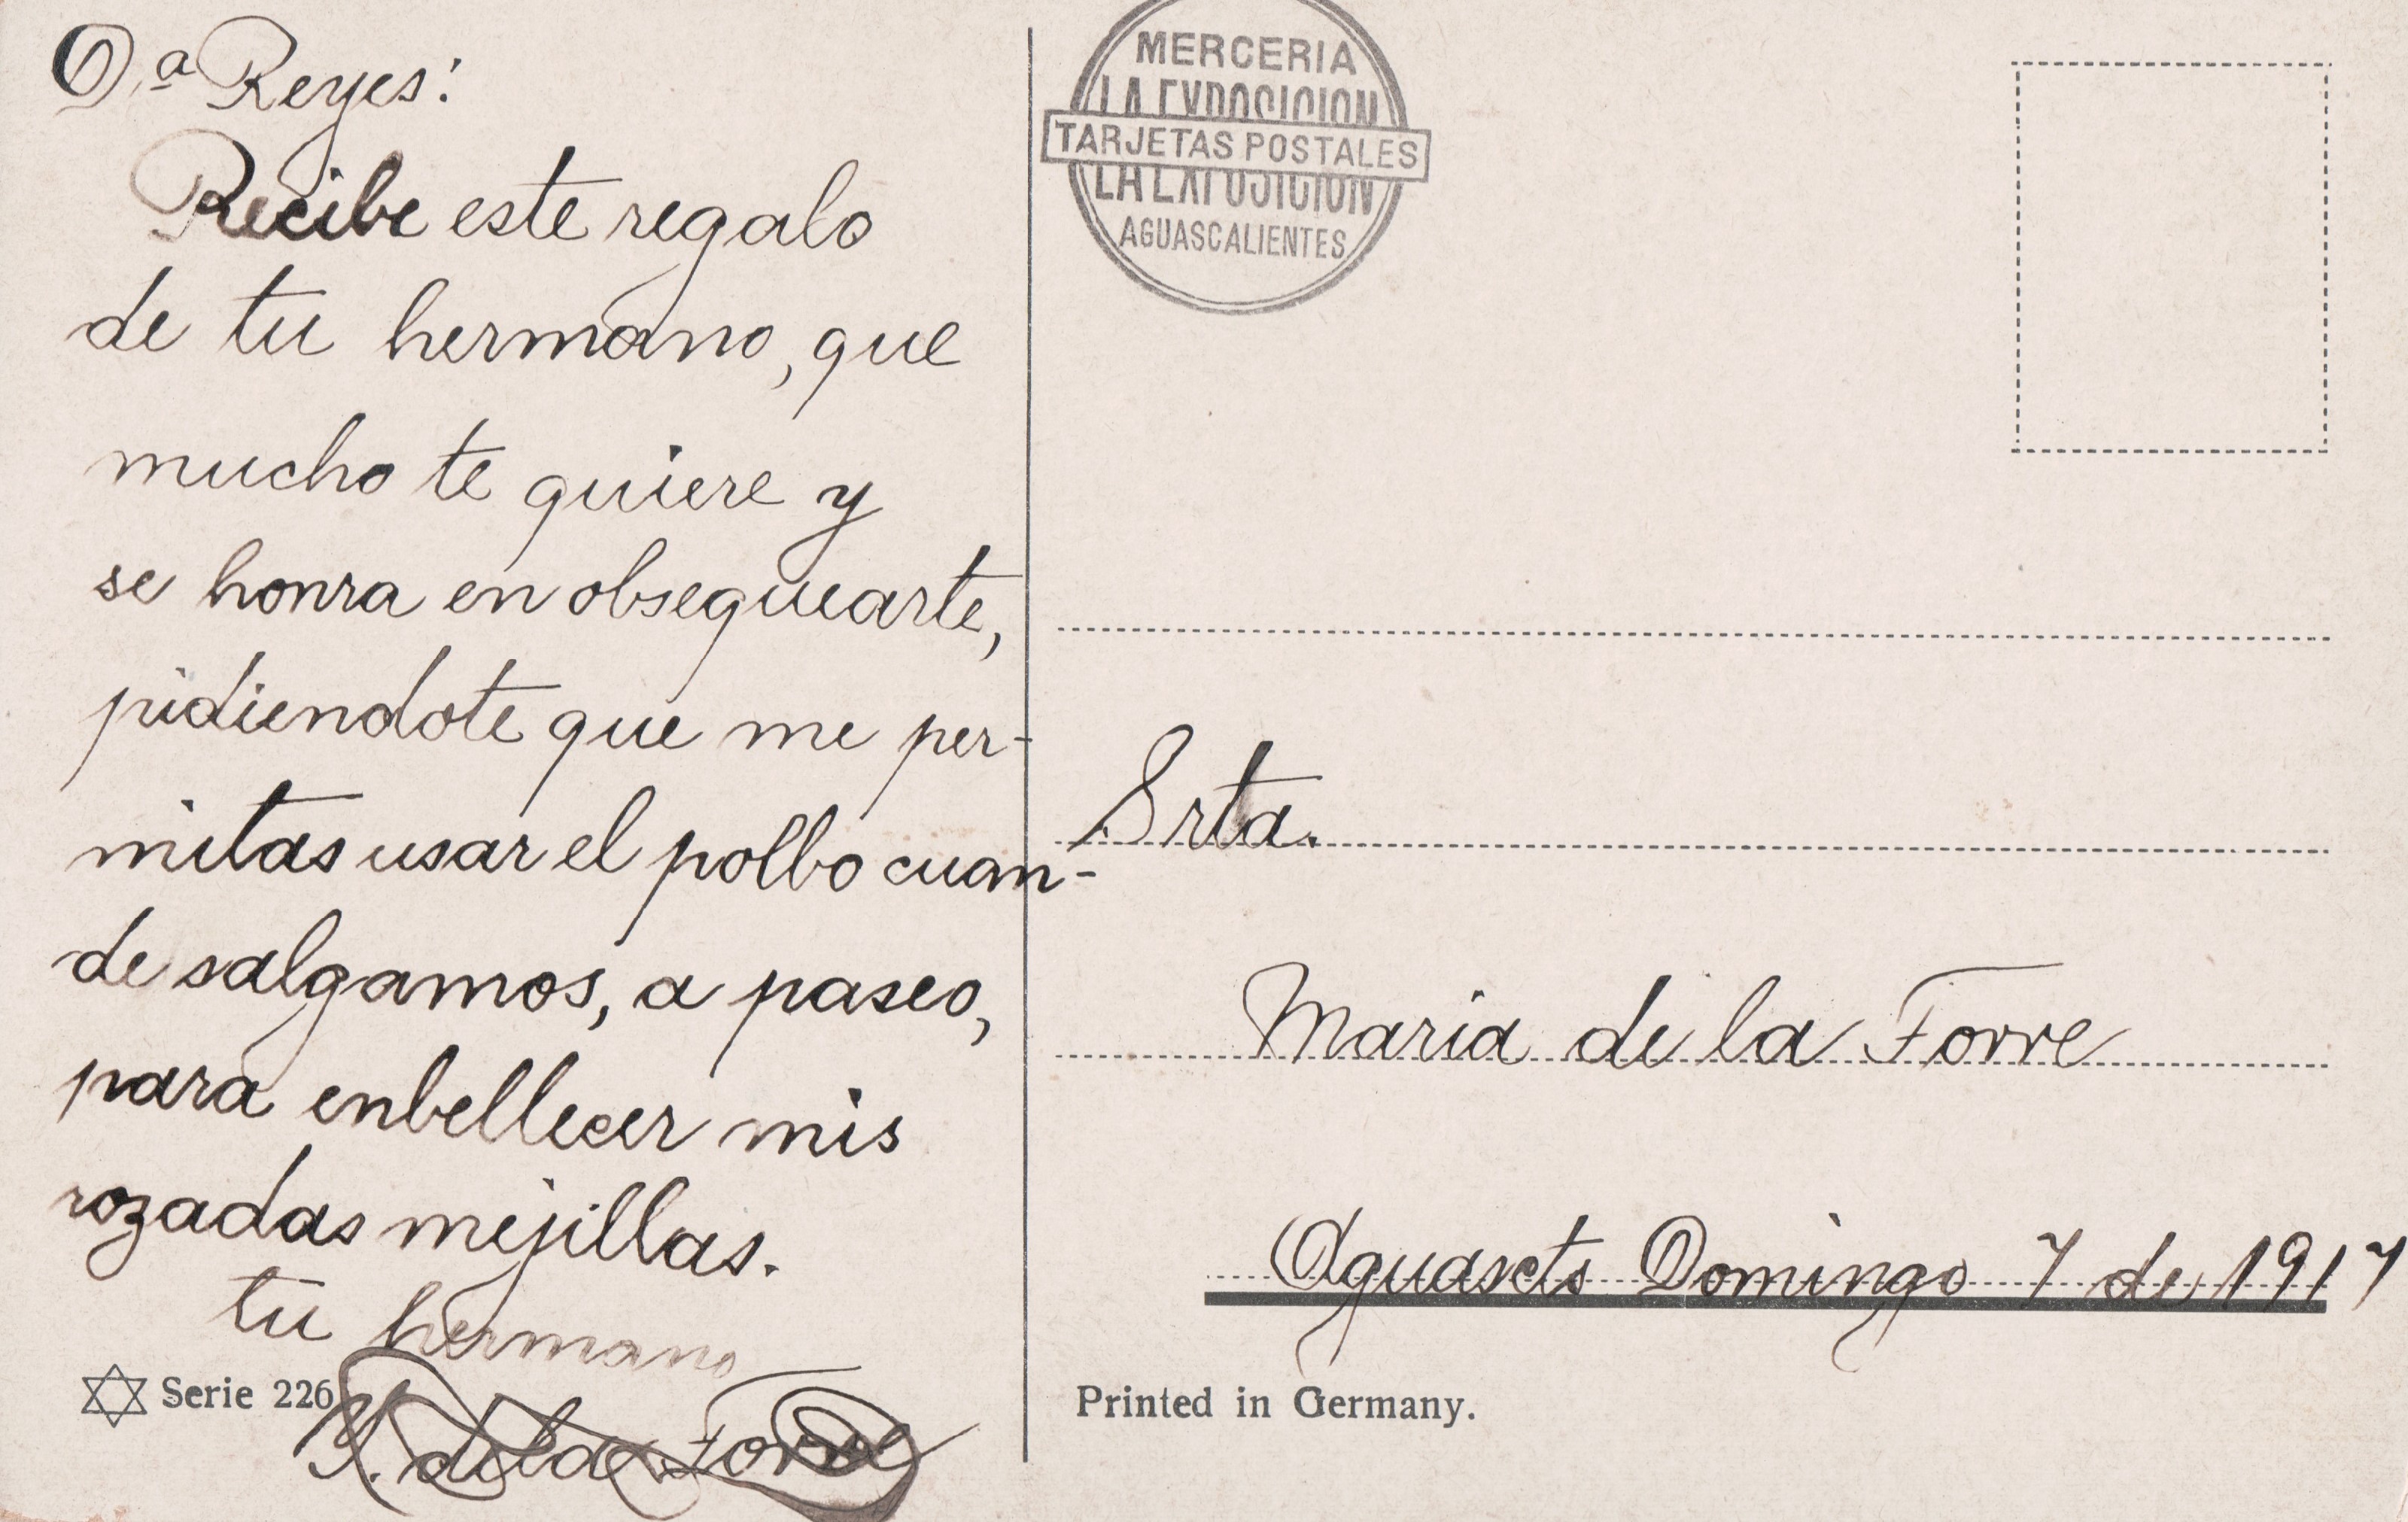 D.ª Reyes:
Recibe este regalo
de tu hermano, que
mucho te quiere y
se honra en obsequearte,
pidiendote que me per-
mitas usar el polbo cuan-
de salgamos, a paseo,
para enbellecer mis
rozadas mejillas.
tu hermano
Y. de la Torre
Serie 226
MERCERIA
LA EXPOSICION
TARJETAS POSTALES
LA EXPOSICION
AGUASCALIENTES
Srta.
Maria de la Torre
Aguascts Domingo 7 de 1917
Printed in Germany.